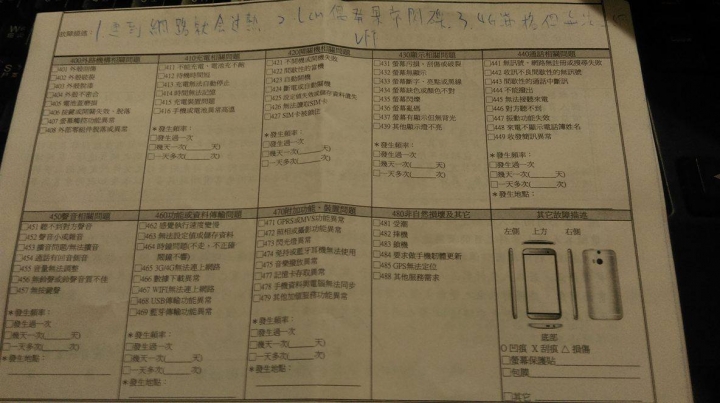 故障描述:
400外觀機構相關問題
401 外殼刮傷
402 外殼破裂
403 外殼脫漆
404 外殼不密合
405 電池蓋鬆脫
406 按鍵或開關失效、脫落
407 螢幕觸控功能異常
408 外部零組件脫落或異常
*發生頻率:
□發生過一次
□幾天一次( 天)
□一天多次( )
410充電相關問題
411 不能充電、電池充不飽
412 待機時間短
413 充電無法自動停止
414 時間無法記憶
415 充電裝置問題
416 手機或電池異常高溫
*發生頻率:
□發生過一次
□幾天一次( 天)
□一天多次( )
420開關機相關問題
421 不開機或開機失敗
422 間歇性的當機
423 自動開機
424 斷電或自動關機
425 設定值失效或儲存資料遺失
426 無法讀取SIM卡
427 SIM卡被鎖住
*發生頻率
□發生過一次
□幾天一次( 天)
□一天多次( )
430顯示相關問題
431 螢幕污損、刮傷或破裂
432 螢幕無顯示
433 螢幕斷字、亮點或黑線
434 螢幕缺色或顏色不對
435 螢幕閃爍
436 螢幕亂碼
437 螢幕有顯示但無背光
439 其他顯示燈不亮
*發生頻率:
□發生過一次
□幾天一次( 天)
□一天多次( )
440通話相關問題
441 無訊號、網路無註冊或搜尋失敗
442 收訊不良間歇性的無訊號
443 間歇性的通話中斷訊
444 不能撥出
445 無法接聽來電
446 對方聽不到
447 振動功能失效
448 來電不顯示電話簿姓名
449 收發簡訊異常
*發生頻率:
□發生過一次
□幾天一次( 天)
□一天多次( )
*發生地點:
450聲音相關問題
451 聽不到對方聲音
452 聲音小或雜音
453 擴音問題/無法擴音
454 通話有回音雜音
455 音量無法調整
456 無鈴聲或鈴聲音質不佳
457 無按鍵聲
*發生頻率:
□發生過一次
□幾天一次( 天)
□一天多次( )
*發生地點:
460功能或資料傳輸問題
462 感覺執行速度變慢
463 無法設定值或儲存資料
464 時鐘問題(不走,不正確
鬧鐘不響)
465 3G/4G無法連上網路
466 數據下載異常
467 WIFI無法連上網路
468 USB傳輸功能異常
469 藍芽傳輸功能異常
*發生頻率:
□發生過一次
□幾天一次( 天)
□一天多次( )
*發生地點:
470附加功能、裝置問題
471 GPRS或MVS功能異常
472 照相或攝影功能異常
473 閃光燈異常
474 免持或藍牙耳機無法使用
475 音樂播放異常
477 記憶卡存取異常
478 手機資料與電腦無法同步
479 其他加值服務功能異常
*發生頻率:
□發生過一次
□幾天一次( 天)
□一天多次( )
*發生地點:
480非自然損壞及其它
481 受潮
482 摔機
483 鎖機
484 要求做手機軔體更新
485 GPS無法定位
488 其他服務需求
其它故障描述
左側 上方 右側
底部
O 凹痕 X 刮痕 △ 損傷
□螢幕保護貼
□包膜
□其它